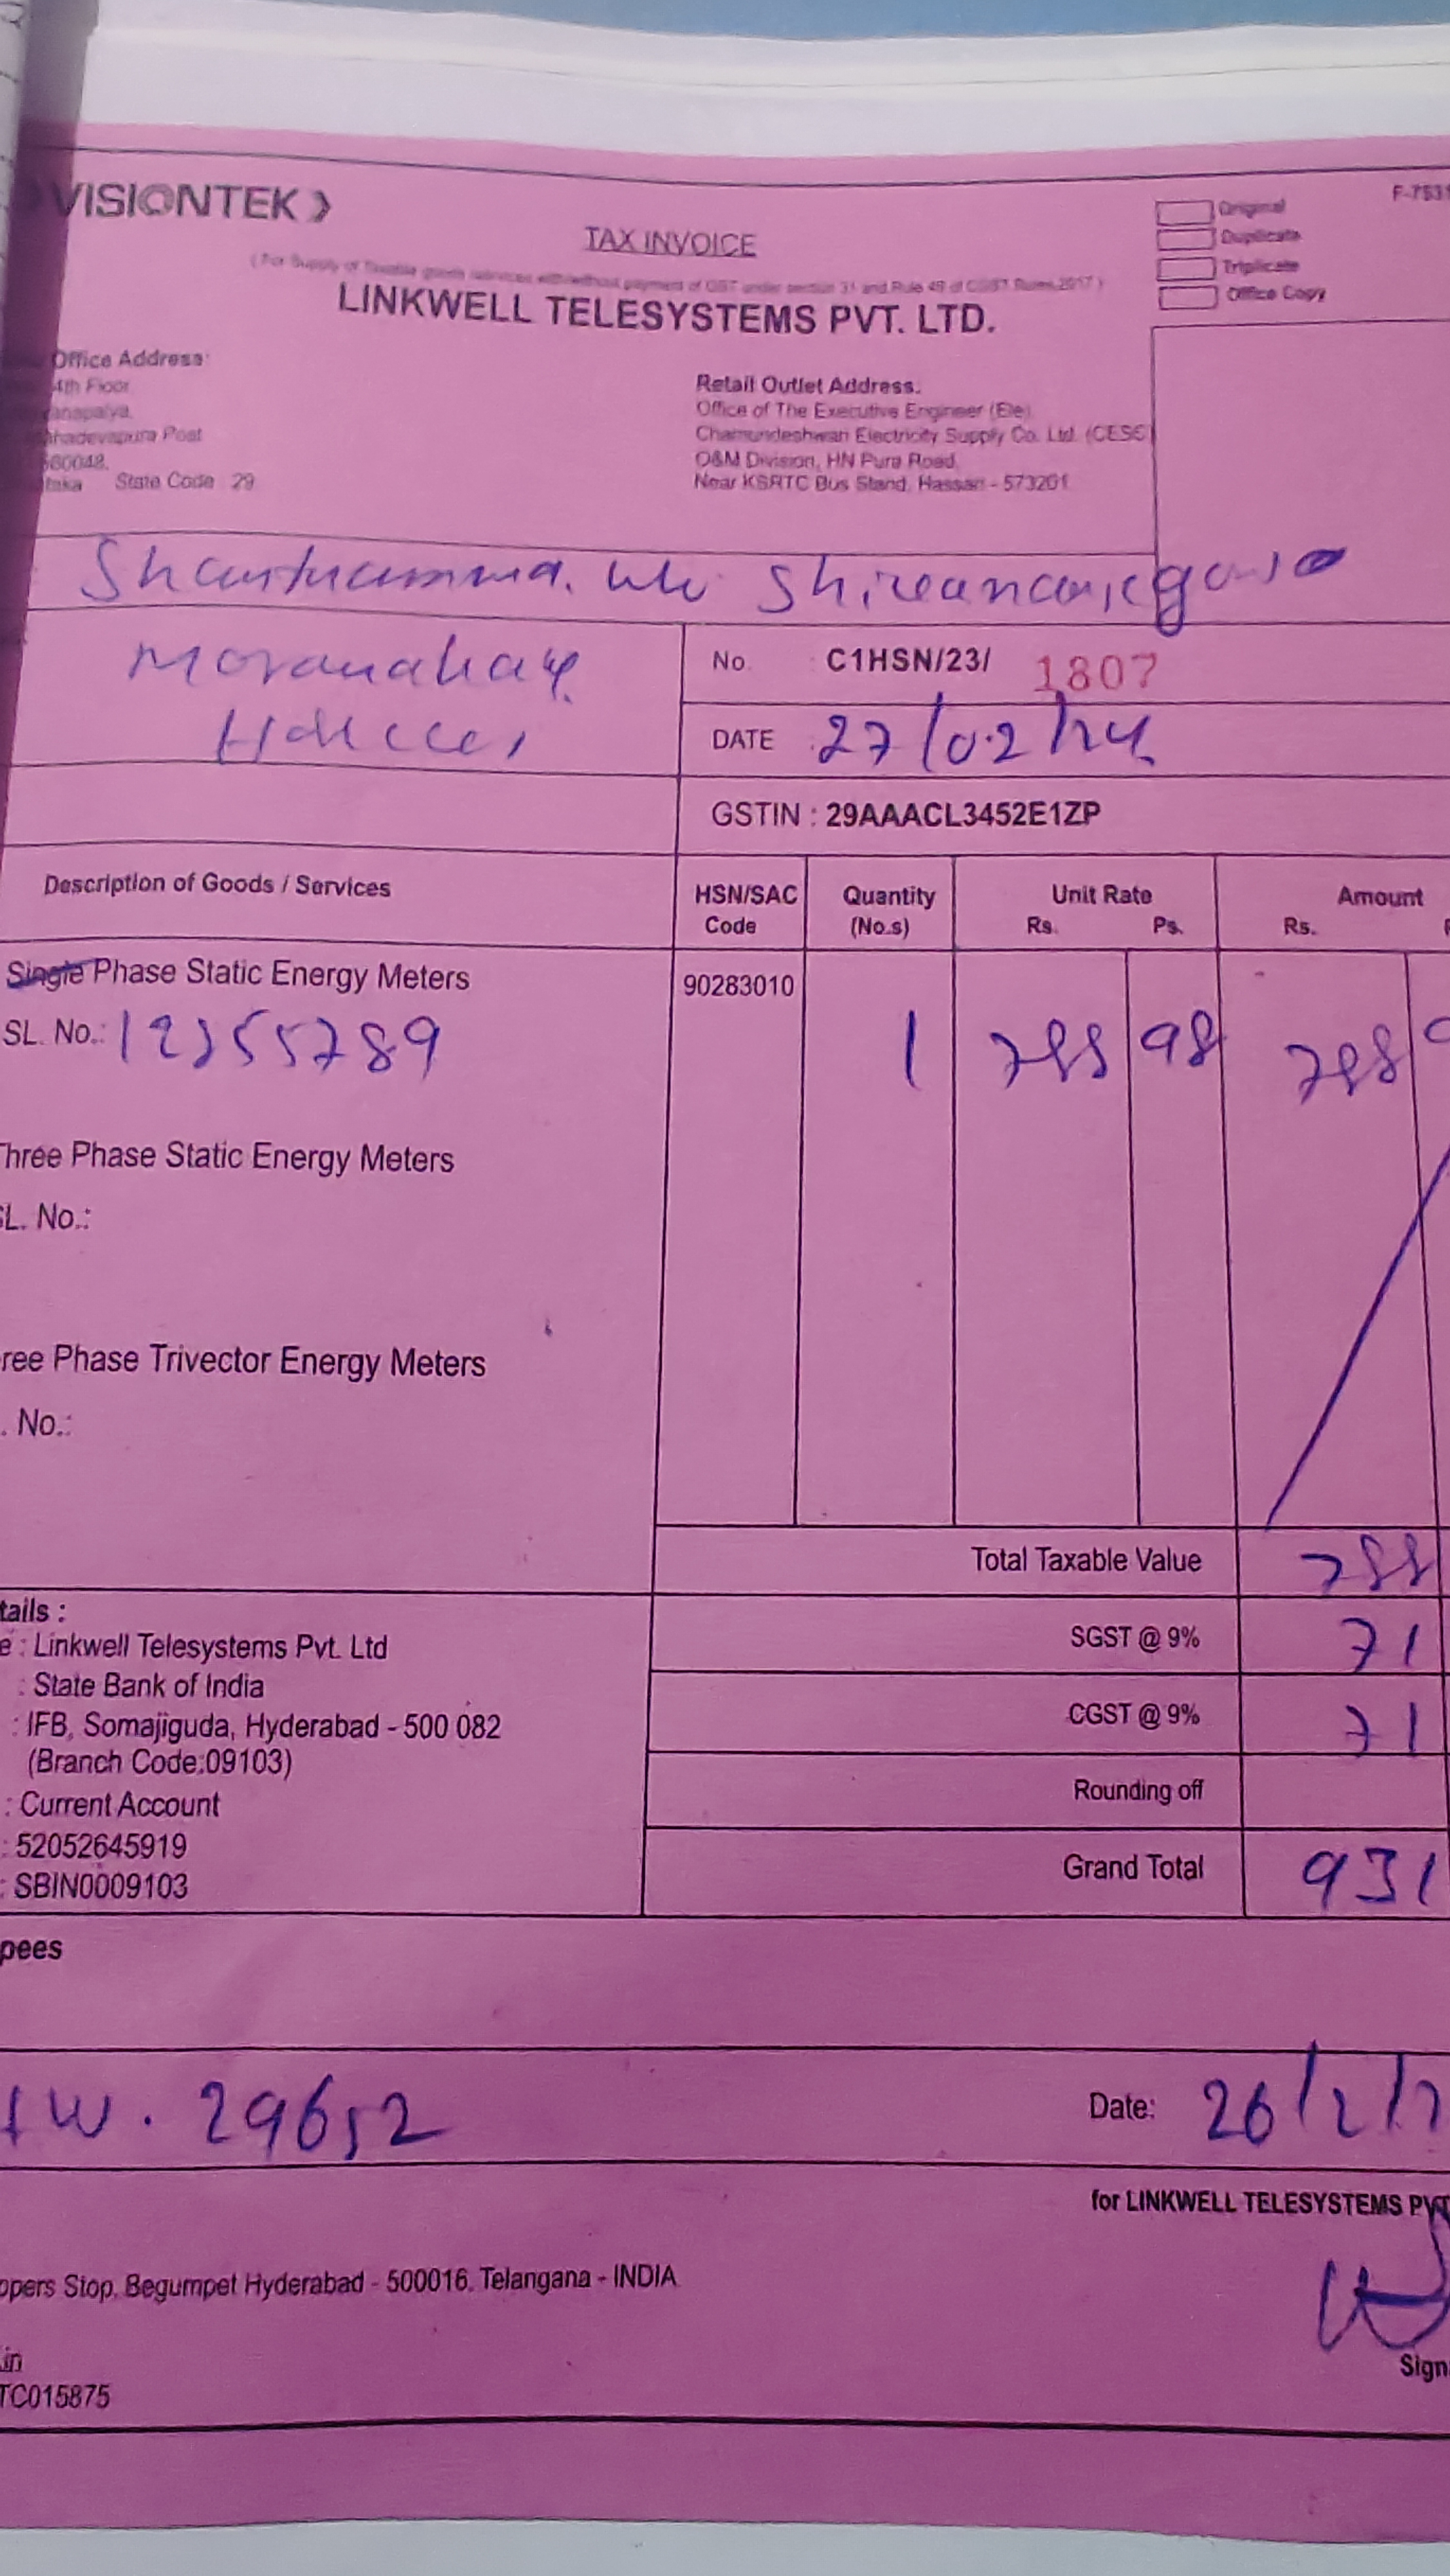 VISIONTEK
F-7531
TAX INVOICE
Original
Duplicate
Triplicate
Office Copy
(For Supply of Taxable goods /services with/without payment of GST under section 31 and Rule 46 of CGST Rules,2017)
LINKWELL TELESYSTEMS PVT. LTD.
Office Address:
4th Floor,
anapalya,
hadevapura Post
560048,
taka State Code 29
Retail Outlet Address.
Office of The Executive Engineer (Ele)
Chamundeshwari Electricity Supply Co. Ltd. (CESC)
O&M Division, HN Pura Road,
Near KSRTC Bus Stand, Hassan - 573201
No. : C1HSN/23/ 1807
DATE : 27/02/24
GSTIN : 29AAACL3452E1ZP
Description of Goods / Services
HSN/SAC Code
Quantity (No.s)
Unit Rate Rs. Ps.
Amount Rs.
Single Phase Static Energy Meters 90283010
SL. No.: 1 788 98 788
Three Phase Static Energy Meters
SL. No.:
ree Phase Trivector Energy Meters
. No.:
Total Taxable Value 788
tails :
e : Linkwell Telesystems Pvt. Ltd
: State Bank of India
: IFB, Somajiguda, Hyderabad - 500 082
(Branch Code:09103)
: Current Account
: 52052645919
: SBIN0009103
SGST @ 9% 71
CGST @ 9% 71
Rounding off
Grand Total 931
pees
29652
Date: 26/2/
for LINKWELL TELESYSTEMS PVT
ppers Stop, Begumpet Hyderabad - 500016. Telangana - INDIA
.in
TC015875
Sign